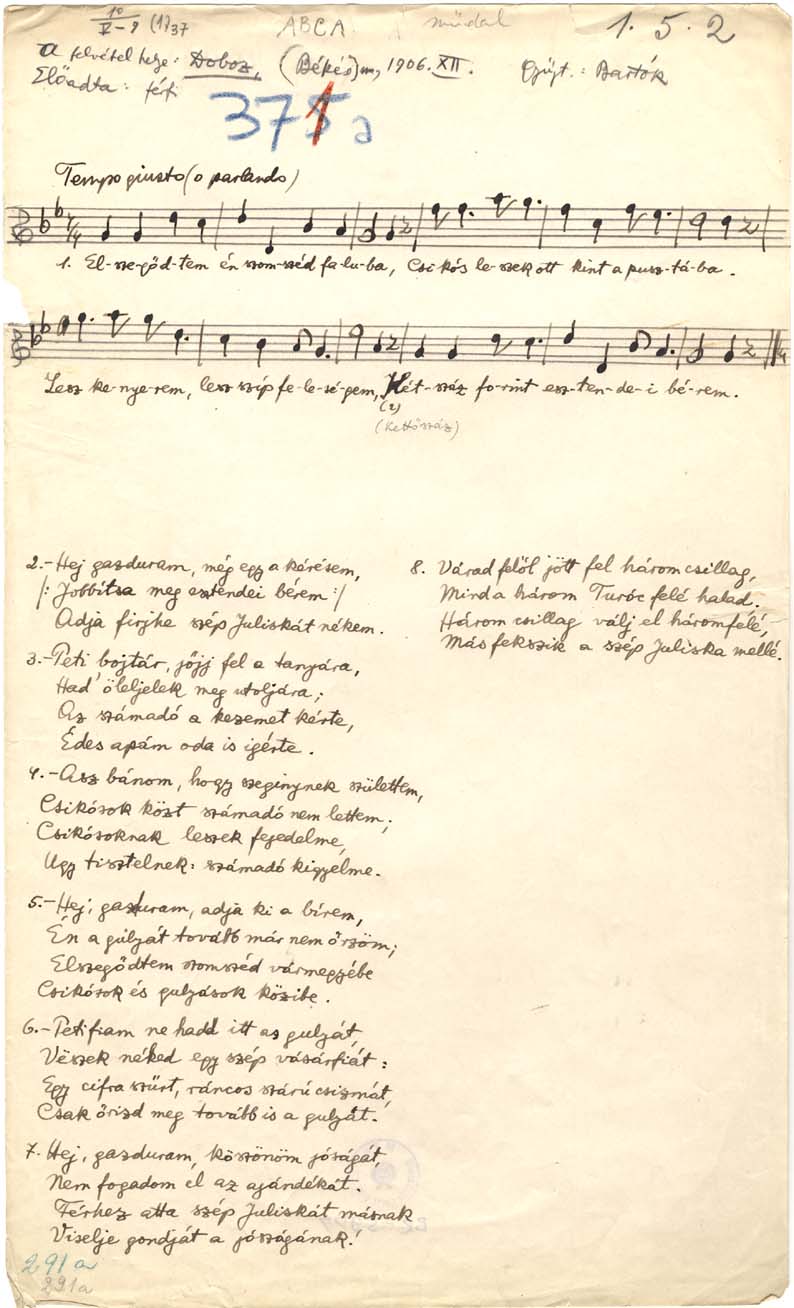 10
V-9 (1)37 ABCA műdal 1. 5. 2
A felvétel helye: Doboz, (Békés)m, 1906. XII. Gyűjt.: Bartók
Előadta: férfi
371a
Tempo giusto (o parlando)
1. El-sze-gőd-tem én szom-széd fa-lu-ba, Csi-kós le-szek ott kint a pusz-tá-ba.
Lesz ke-nye-rem, lesz szíp fe-le-sé-gem, Hét-száz fo-rint esz-ten-de-i bé-rem.
(2)
(kettőszáz)
2.- Hej gazduram, még egy a kérésem,
/: Jobbítsa meg esztendei bérem :/
Adja firjhe szép Juliskát nékem.
3.- Peti bojtár, jőjj fel a tanyára,
Had' öleljelek meg utoljára;
Az számadó a kezemet kérte,
Édes apám oda is igérte.
4.- Asz bánom, hogy szeginynek születtem,
Csikósok közt számadó nem lettem;
Csikósoknak leszek fejedelme,
Ugy tisztelnek: számadó kigyelme.
5.- Hej, gazduram, adja ki a bírem,
Én a gulyát tovább már nem őrzöm;
Elszegődtem szomszéd vármegyébe
Csikósok és gulyások közibe.
6.- Peti fiam ne hadd itt az gulyát,
Vëszek néked egy szép vásárfiát:
Egy cifra szürt, ráncos szárú csizmát,
Csak őrizd meg tovább is a gulyát.
7. Hej, gazduram, köszönöm jóságát,
Nem fogadom el az ajándékát.
Férhez atta szép Juliskát másnak
Viselje gondját a jószágának!
8. Várad felől jött fel három csillag,
Mind a három Turóc felé halad.
Három csillag válj el háromfélé,
Más fekszik a szép Juliska mellé.
291a
291a